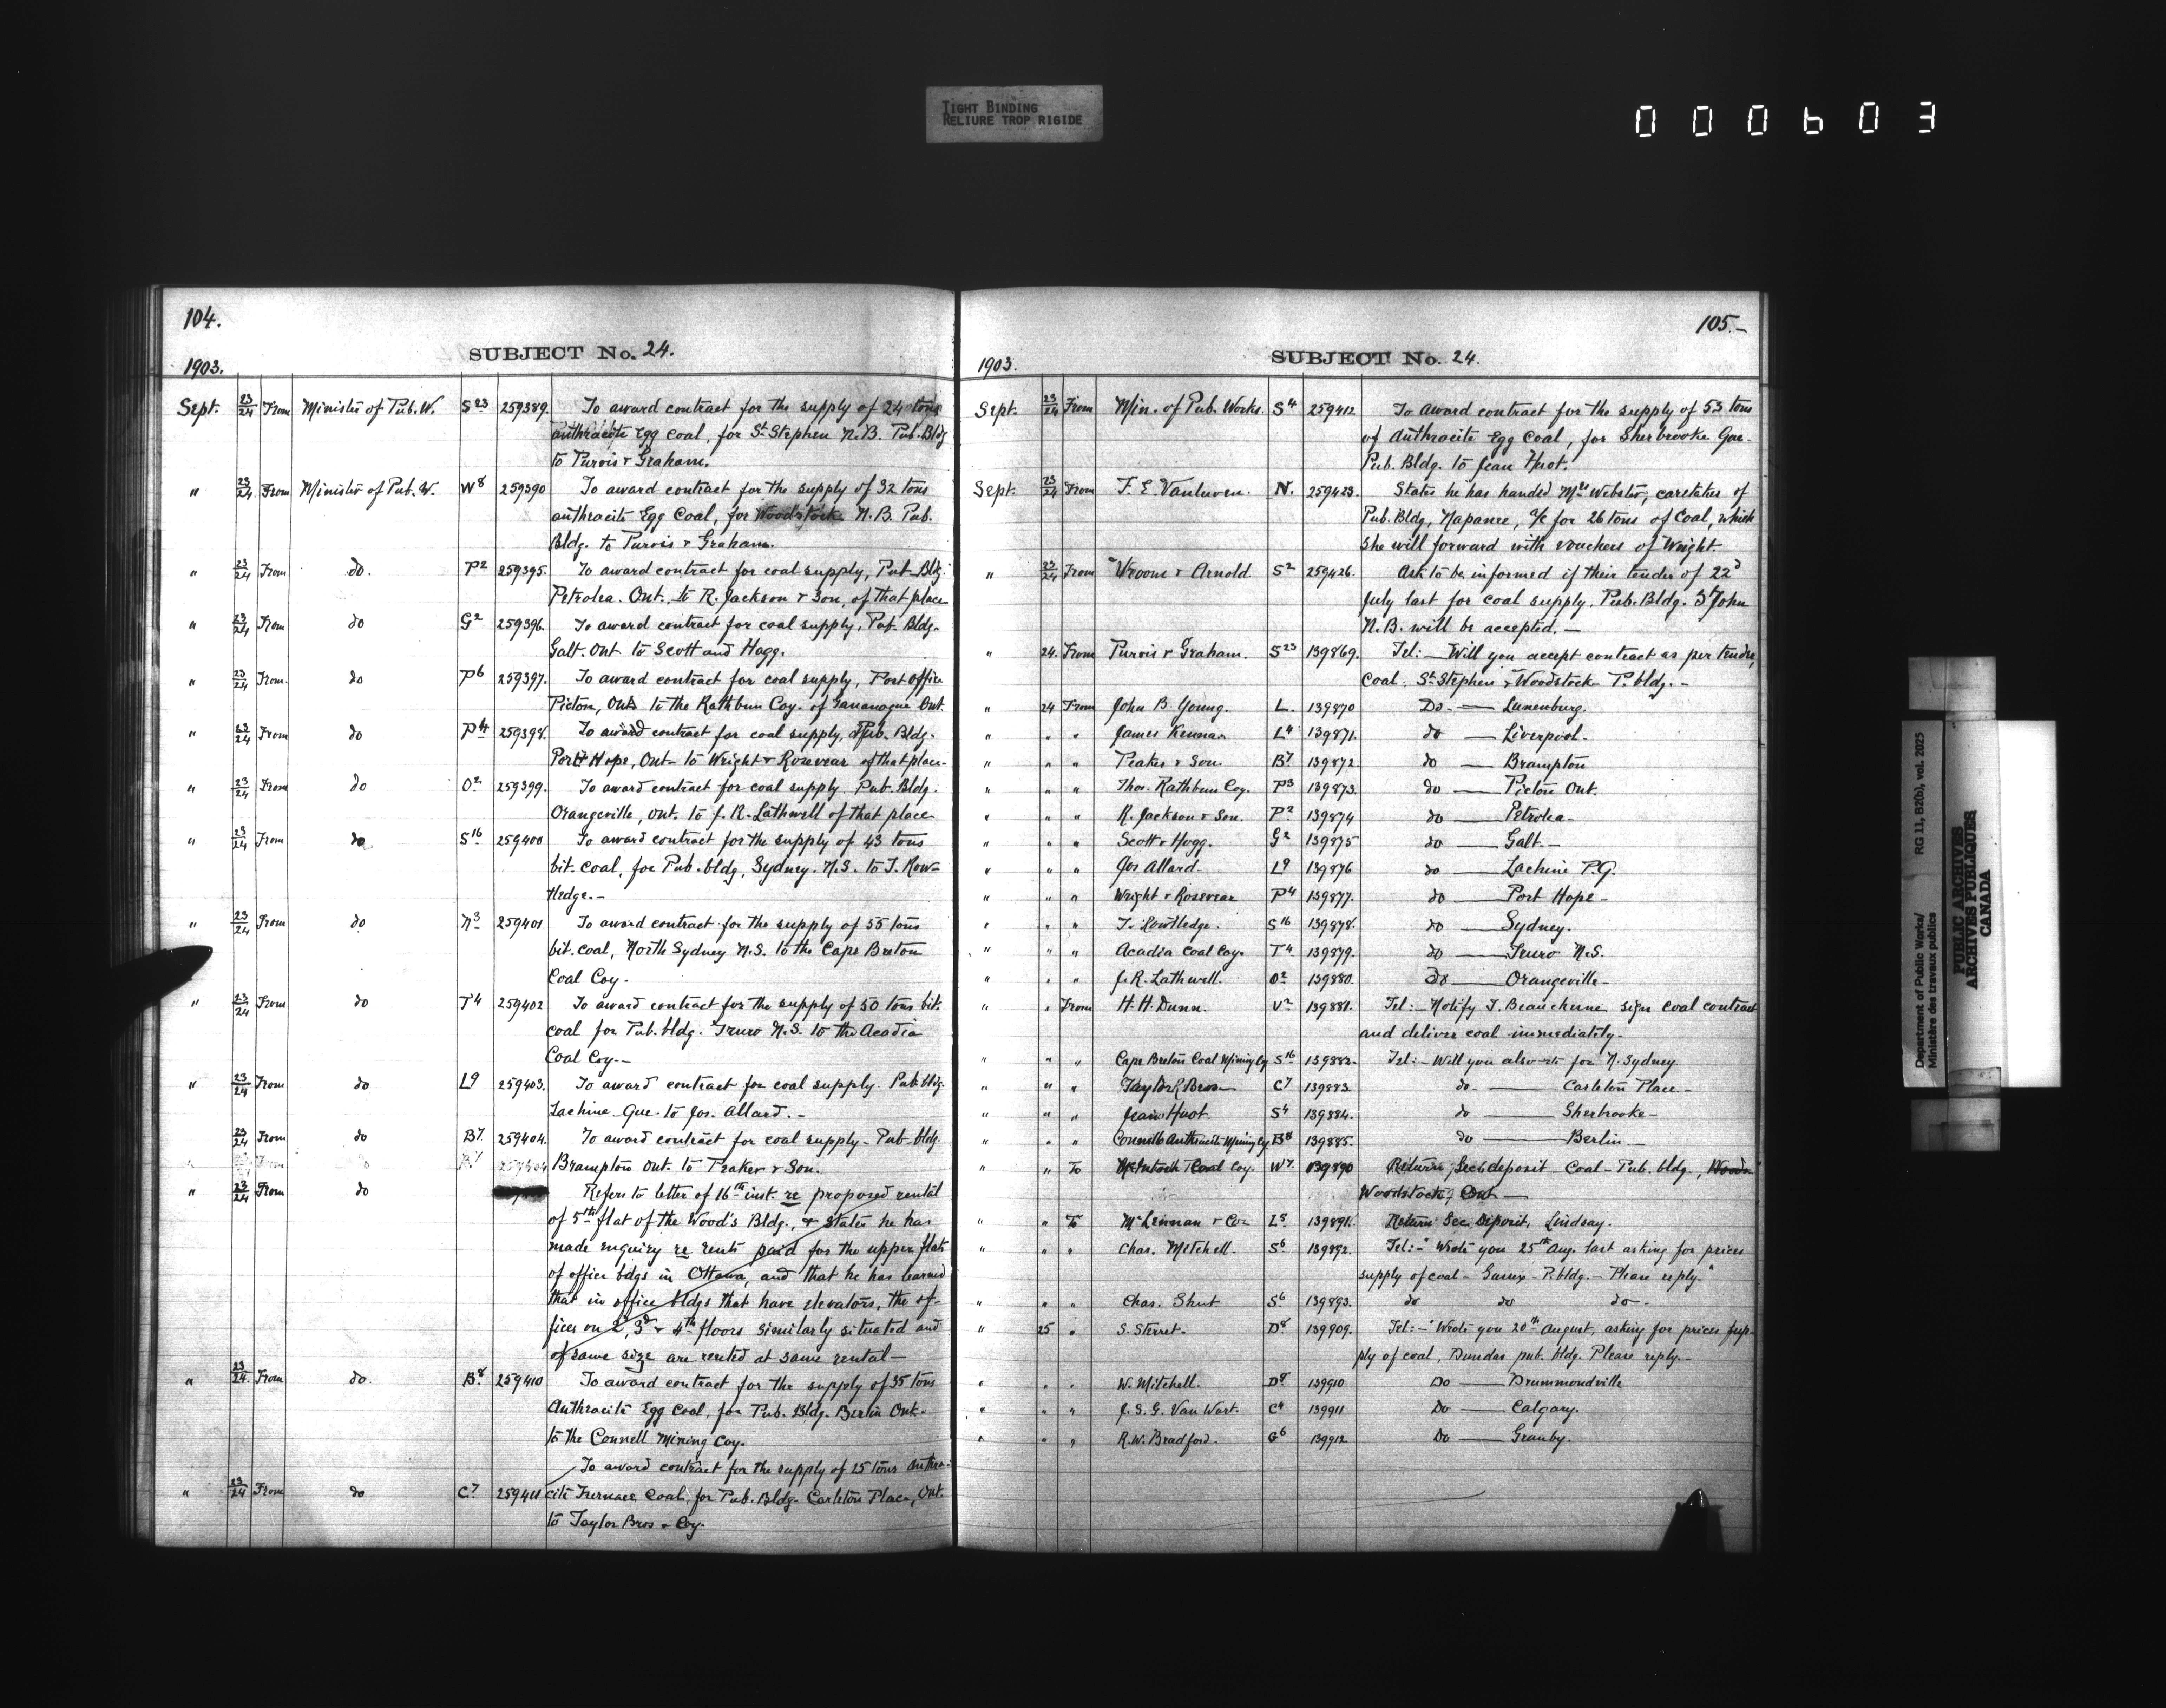 TIGHT BINDING
RELIURE TROP RIGIDE
000603
104.
SUBJECT No. 24.
1903.
Sept. 23/24 From Minister of Pub. W. S 23 259389. To award contract for the supply of 24 tons
anthracite Egg Coal, for St Stephen N.B. Pub. Bldg
to Purvis & Graham.
" 23/24 From Minister of Pub. W. W 8 259390 To award contract for the supply of 32 tons
anthracite Egg Coal, for Woodstock N.B. Pub.
Bldg. to Purvis & Graham.
" 23/24 From do. P 2 259395. To award contract for coal supply, Pub. Bldg.
Petrolea. Ont. to R. Jackson & Son, of that place
" 23/24 From do G 2 259396. To award contract for coal supply, Pub. Bldg.
Galt. Ont. to Scott and Hogg.
" 23/24 From do P 6 259397. To award contract for coal supply, Post office
Picton, Ont. to the Rathbun Coy. of Gananoque Ont.
" 23/24 From do P 4 259398. To award contract for coal supply, Pub. Bldg.
Port Hope, Ont- to Wright & Rosevear of that place-
" 23/24 From do O 2 259399. To award contract for coal supply Pub. Bldg.
Orangeville, Ont. to J. R. Lathwell of that place
" 23/24 From do S 16 259400 To award contract for the supply of 43 tons
bit. coal, for Pub. bldg, Sydney. N.S. to T. Row-
tledge.-
" 23/24 From do N 3 259401 To award contract for the supply of 55 tons
bit. coal, North Sydney N.S. to the Cape Breton
Coal Coy-
" 23/24 From do T 4 259402 To award contract for the supply of 50 tons bit.
coal for Pub. bldg. Truro N.S. to the Acadia
Coal Coy.-
" 23/24 From do L 9 259403. To award contract for coal supply Pub. bldg.
Lachine Que. to Jos. Allard.-
23/24 From do B 7. 259404. To award contract for coal supply- Pub. bldg.
Brampton Ont. to Peaker & Son.
" 23/24 From do Refers to letter of 16th inst. re proposed rental
of 5th flat of the Wood's Bldg., & states he has
made enquiry re rents paid for the upper flats
of office bdgs in Ottawa, and that he has learned
that in office bldgs that have elevators, the of-
fices on 2, 3d & 4th floors similarly situated and
of same size are rented at same rental-
" 23/24. From do. B 8 259410 To award contract for the supply of 35 tons
Anthracite Egg Coal, for Pub. Bldg. Berlin Ont.
to the Connell Mining Coy.
To award contract for the supply of 25 tons Anthra-
" 23/24 From do C 7 259411 cite Furnace Coal, for Pub. Bldg. Carleton Place, Ont.
to Taylor Bros & Coy.
105.-
SUBJECT No. 24.
1903.
Sept. 23/24 From Min. of Pub. Works. S 4 259412 To award contract for the supply of 53 tons
of Anthracite Egg Coal, for Sherbrooke Que.
Pub. Bldg. to Jean Huot.
Sept. 23/24 From F. E. Vanluven. N. 259423. States he has handed Mrs Webster, caretaker of
Pub. Bldg, Napanee, a/c for 26 tons of Coal, which
she will forward with vouchers of Wright
" 23/24 From Vroom & Arnold S 2 259426. Ask to be informed if their tender of 22d
July last for coal supply, Pub. Bldg. St John
N.B. will be accepted.-
" 24. From Purvis & Graham. S 23 139869. Tel:- Will you accept contract as per tender,
Coal. St Stephen & Woodstock P. bldg.-
" 24 From John B. Young. L. 139870 Do.- Lunenburg.
" " " James Kennan L 4 139871. do - Liverpool-
" " " Peaker & Son. B 7. 139872. do - Brampton
" " " Thos. Rathbun Coy. P 3 139873. do - Picton Ont.
" " " R. Jackson & Son. P 2 139874 do - Petrolea-
" " " Scott & Hogg. G 2 139875 do - Galt.-
" " " Jos Allard. L 9 139876 do - Lachine P.Q.
" " " Wright & Rosevear P 4 139877. do - Port Hope-
" " " T. Routledge. S 16 139878. do - Sydney.
" " " Acadia Coal Coy. T 4 139879. do - Truro N.S.
" " " J. R. Lathwell. O 2 139880. do - Orangeville-
" " From H. H. Dunn. V 2 139881. Tel:- Notify T. Beauchene sign coal contract
and deliver coal immediately.
" " " Cape Breton Coal Mining Cy S 16 139882. Tel:- Will you also do for N. Sydney
" " " Taylor Bros C 7 139883 do. - Carleton Place.-
" " " Jean Huot S 4 139884. do - Sherbrooke-
" " " Connell Anthracite Mining Cy B 8 139885. do - Berlin-
" " To McIntosh Coal Coy. W 7. 139890 Return Sec deposit- Coal- Pub. bldg.,
Woodstock, Ont-
" " To McLennan & Co L 5 139891. Return Sec. Deposit, Lindsay.
" " " Chas. Mitchell. S 6 139892. Tel:- "Wrote you 25th Aug. last asking for prices
supply of coal- Sussex- P. bldg.- Please reply."
" " " Chas. Shut S 6 139893. do do do-
" 25 " S. Sterret. D 8 139909. Tel:- "Wrote you 20th August, asking for prices sup-
ply of coal, Dundas pub. bldg. Please reply.-
" " " W. Mitchell. D 9 139910 Do - Drummondville
" " " J. S. G. Van Wart. C 4 139911 Do - Calgary.
" " " R. W. Bradford. G 6 139912 Do - Granby.
Department of Public Works/
Ministère des travaux publics
RG 11, B2(b), vol. 2025
PUBLIC ARCHIVES
ARCHIVES PUBLIQUES
CANADA